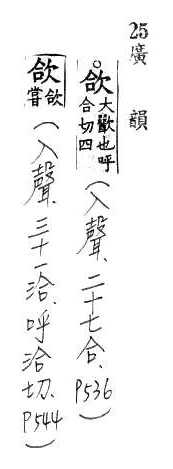 25廣 韻
欱大歠也呼合切四(入聲、二十七合、P536)
欱欱嘗(入聲、三十一洽、呼洽切、P544)